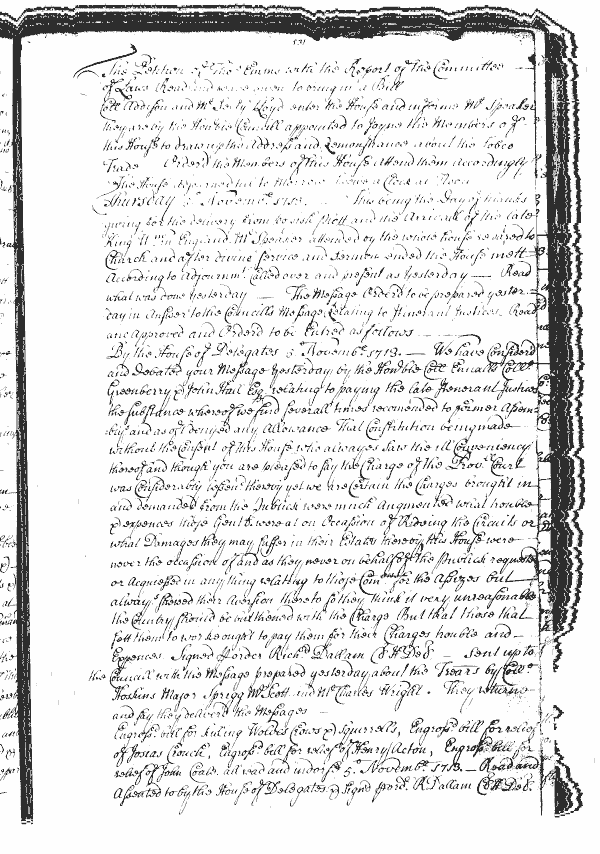 The Petition of Tho.s Emms with the Report of the Committee
of Laws Read and leave given to bring in a Bill
Coll Addison and Mr Lloyd enter the House and informe Mr Speaker
they are by the Honble Councill appointed to Joyne the Members of
this House to draw up the Address and Remonstrance about the Tobco
Trade Orderd the Members of this House attend them accordingly
The House adjourned till to Morrow
Thursday 5 Novembr 1713. This being the Day of thanks
giving for the delivery from Popish Plott and the Arrivall of the late
King Wm in England. Mr Speaker attended by the whole house repaired to
Church and after divine Service and Sermon ended the House mett
According to Adjournmt. Called over and present as Yesterday — Read
what was done Yesterday — The Message Orderd to be prepared yester
day in Answer to the Councills Message relating to Itinerant Justices. Read
and Approved and Orderd to be Entred as follows
By the House of Delegates 5 Novembr. 1713. — We have Considerd
and Debated your Message Yesterday by the Honble Coll Ennalls Coll
Greenberry & John Hall Esqr relating to paying the late Itenerant Justices
the substance whereof we find severall times recomended to former Assem
blys and as oft denyed any Allowance That Constitution being made
without the Consent of this House who alwayes saw the ill Conveniency
thereof and though you are pleased to say the Charge of the Provl. Court
was Considerably lessend thereby yet we are certain the Charges brought in
and demanded from the Publick were much Augmented what trouble
& expences those Gentl were at on Occasion of Rideing the Circuits or
what Damages they may suffer in their Estates thereby this House were
never the occasion of and as they never on behalfe of the Publick requested
or Acquiesed in any thing relating to those for the Assizes but
always shewed their Aversion thereto so they think it very unreasonable
the Country should be burthened with the Charge But that those that
sett them to work ought to pay them for their Charges trouble and
Expences. Signed p order Richd Dallam Cl H Del — Sent up to
the Councill with the Message prepared yesterday about the Trears by Coll
Hoskins Major Sprigg Mr Scott and Mr Charles Wright. They returne
and say they deliverd the Messages
Engrosst. bill for killing Wolves Crows & Squirrells, Engrosst bill for relief
of Josias Crouch, Engrosst bill for relief of Henry Acton, Engrosst bill for
relief of John Coale. all read and indorst 5.th Novembr. 1713. — Read and
Assented to by the House of Delegates & signd p ord. R Dallam Cl H Del.